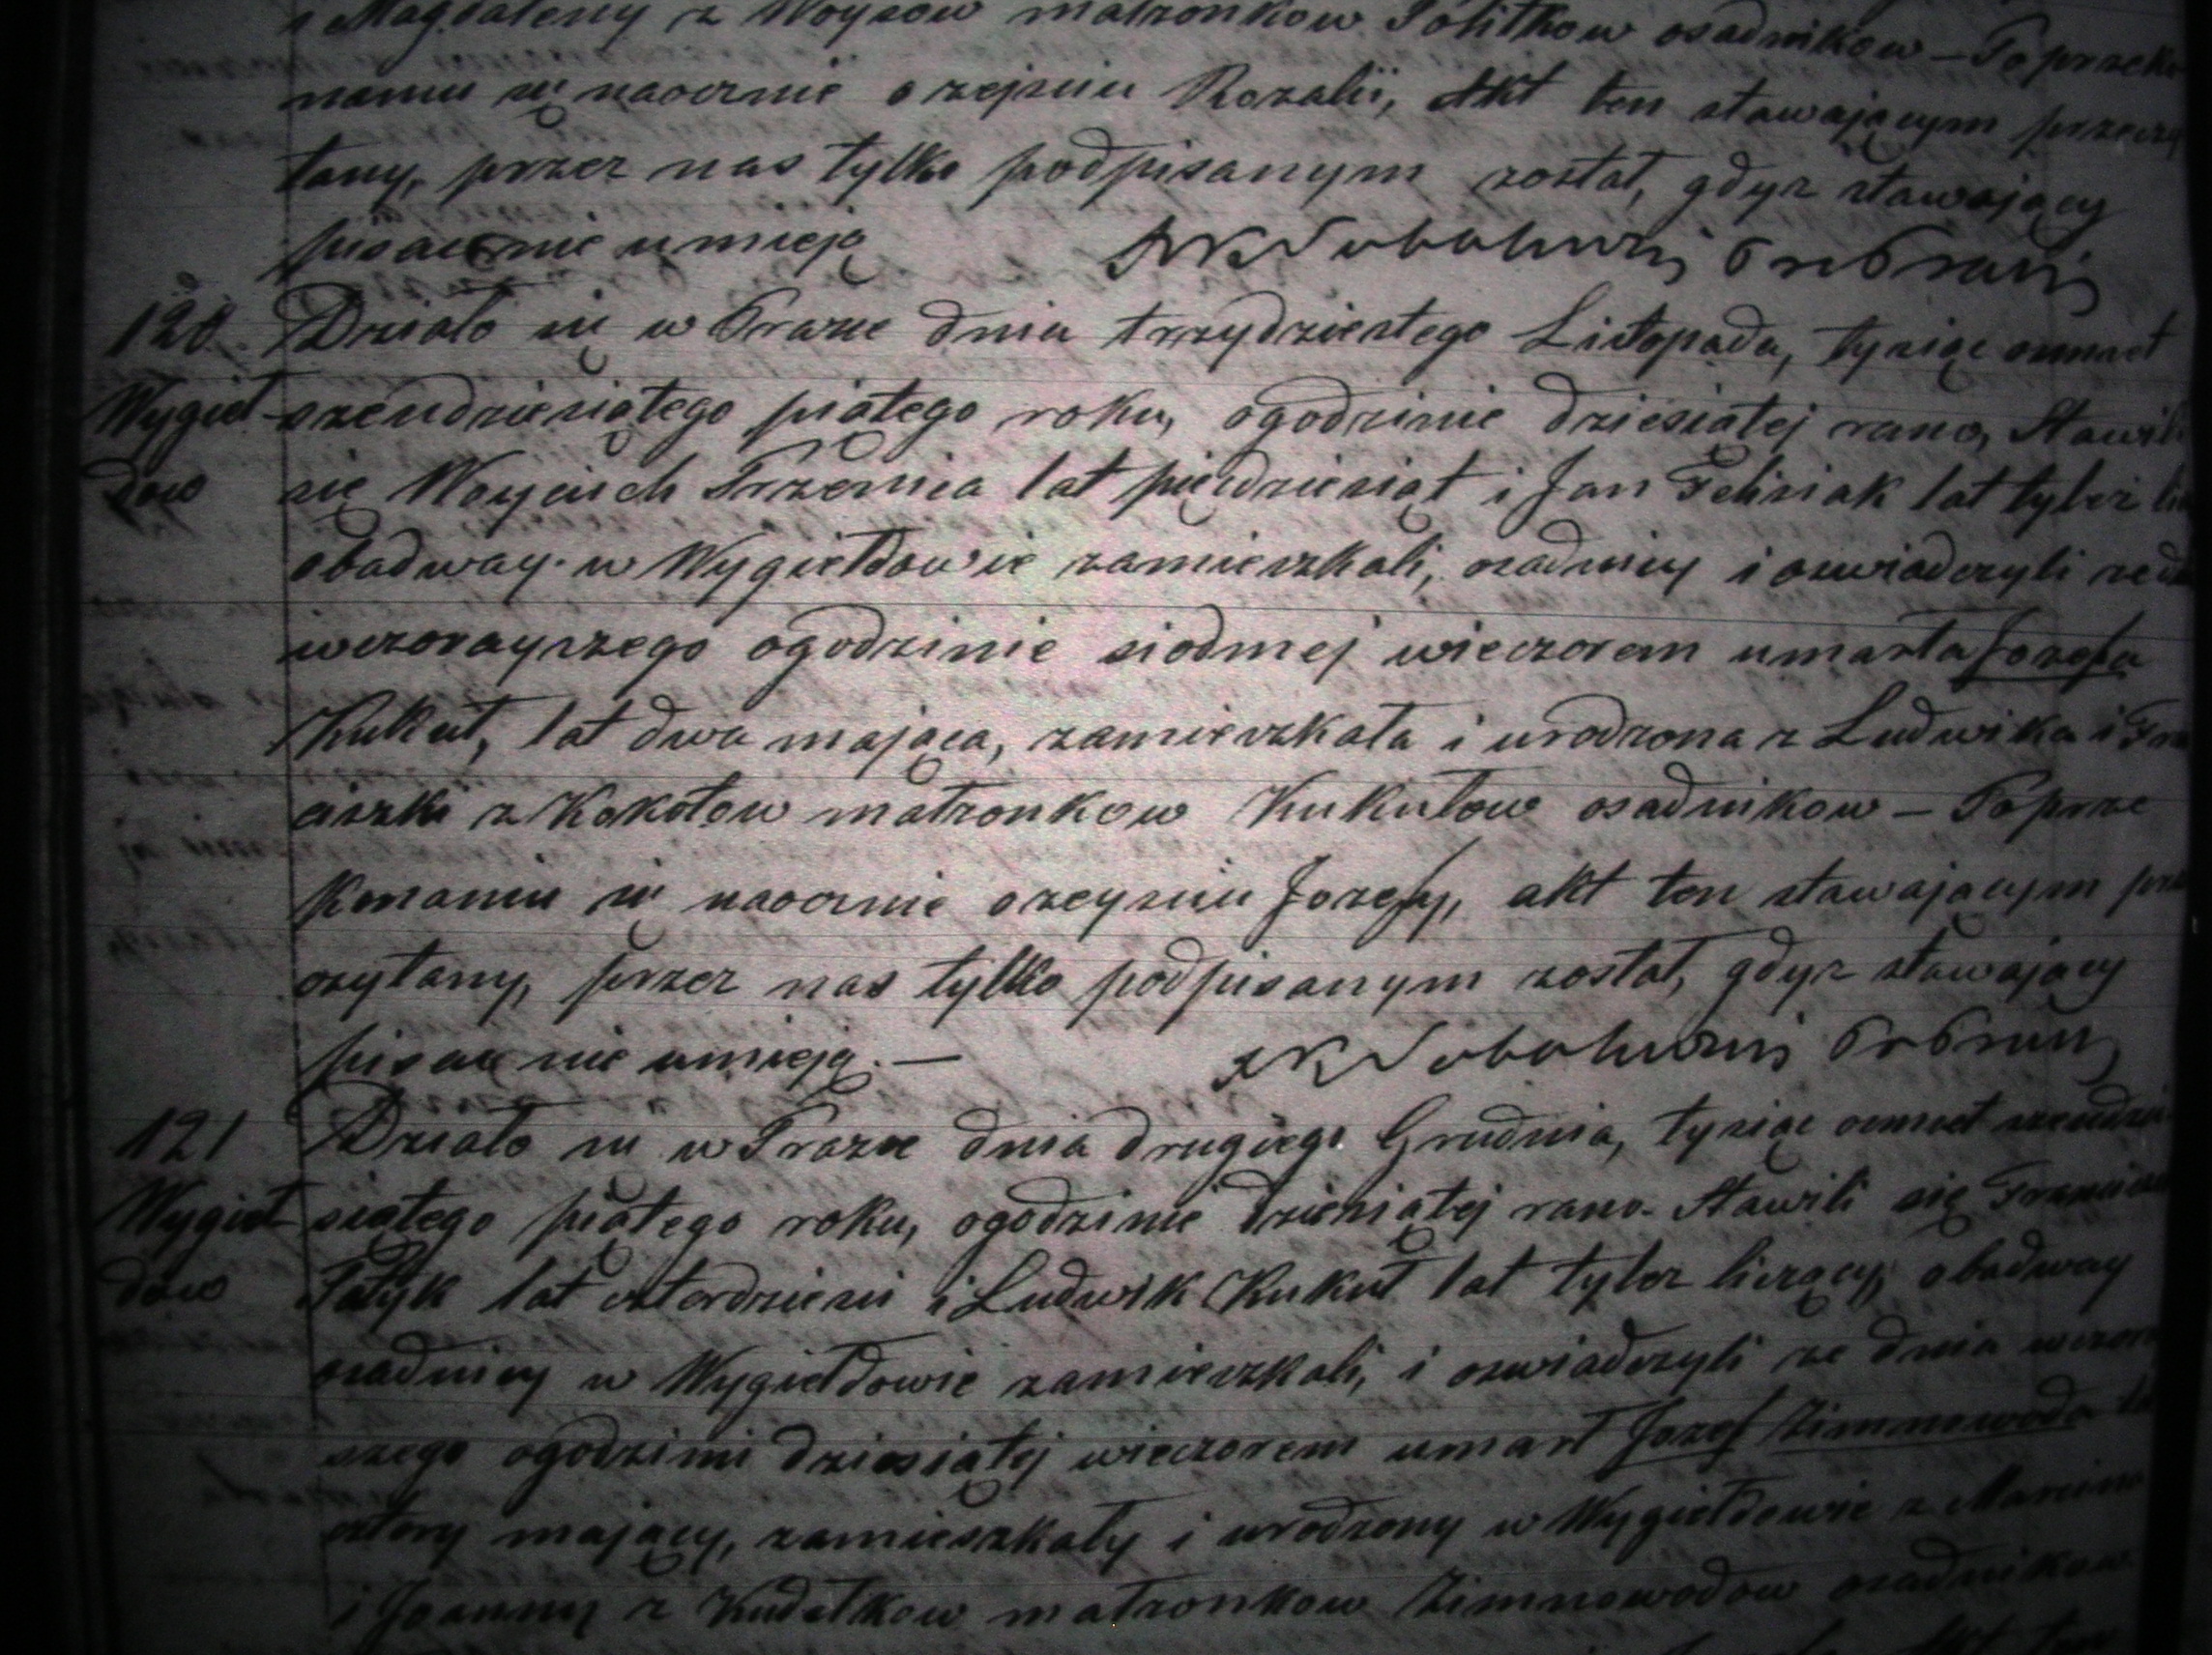 i Magdaleny z Woysow matzonkow Politkow osadnikow – Po przeko
naniu się naocznie o zejsciu Rozalii, Akt ten stawającym przeczy
tany, przez nas tylko podpisanym został, gdyz stawający
pisac nie umieją
120. Działo się w Grazie dnia trzydziestego Listopada, tysiąc osmset
Wygieł szescdziesiątego piątego roku, ogodzinie dziesiatej rano, Stawili
dow się Woyciech Trzemia lat pięcdziesiąt i Jan Felisiak lat tyleż li
obadway w Wygiełdowie zamieszkali, osadnicy i oswiadczyli ze d
wczorayszego ogodzinie siodmej wieczorem umarła Jozefa
Kukuł, lat dwa mająca, zamieszkała i urodzona z Ludwika i Fran
ciszki z Kokotow matzonkow Kukułow osadnikow – Po prze
konaniu się naocznie o zeysciu Jozefy, akt ten stawającym prze
czytany, przez nas tylko podpisanym został, gdyz stawający
pisac nie umieją. —
121 Działo się w Grazie dnia drugiego Grudnia, tysiąc osmset szescdzie
Wygieł siątego piątego roku, ogodzinie dziesiątej rano. Stawili się Francisz
dow Patyk lat czterdziesci i Ludwik Kukuł lat tylez liczący, obadway
osadnicy w Wygiełdowie zamieszkali, i oswiadczyli ze dnia wczoray
szego ogodzinie dziesiątej wieczorem umarł Jozef Zimnowoda la
cztery mający, zamieszkały i urodzony w Wygiełdowie z Marcina
i Joanny z Kudełkow matzonkow Zimnowodow osadnikow